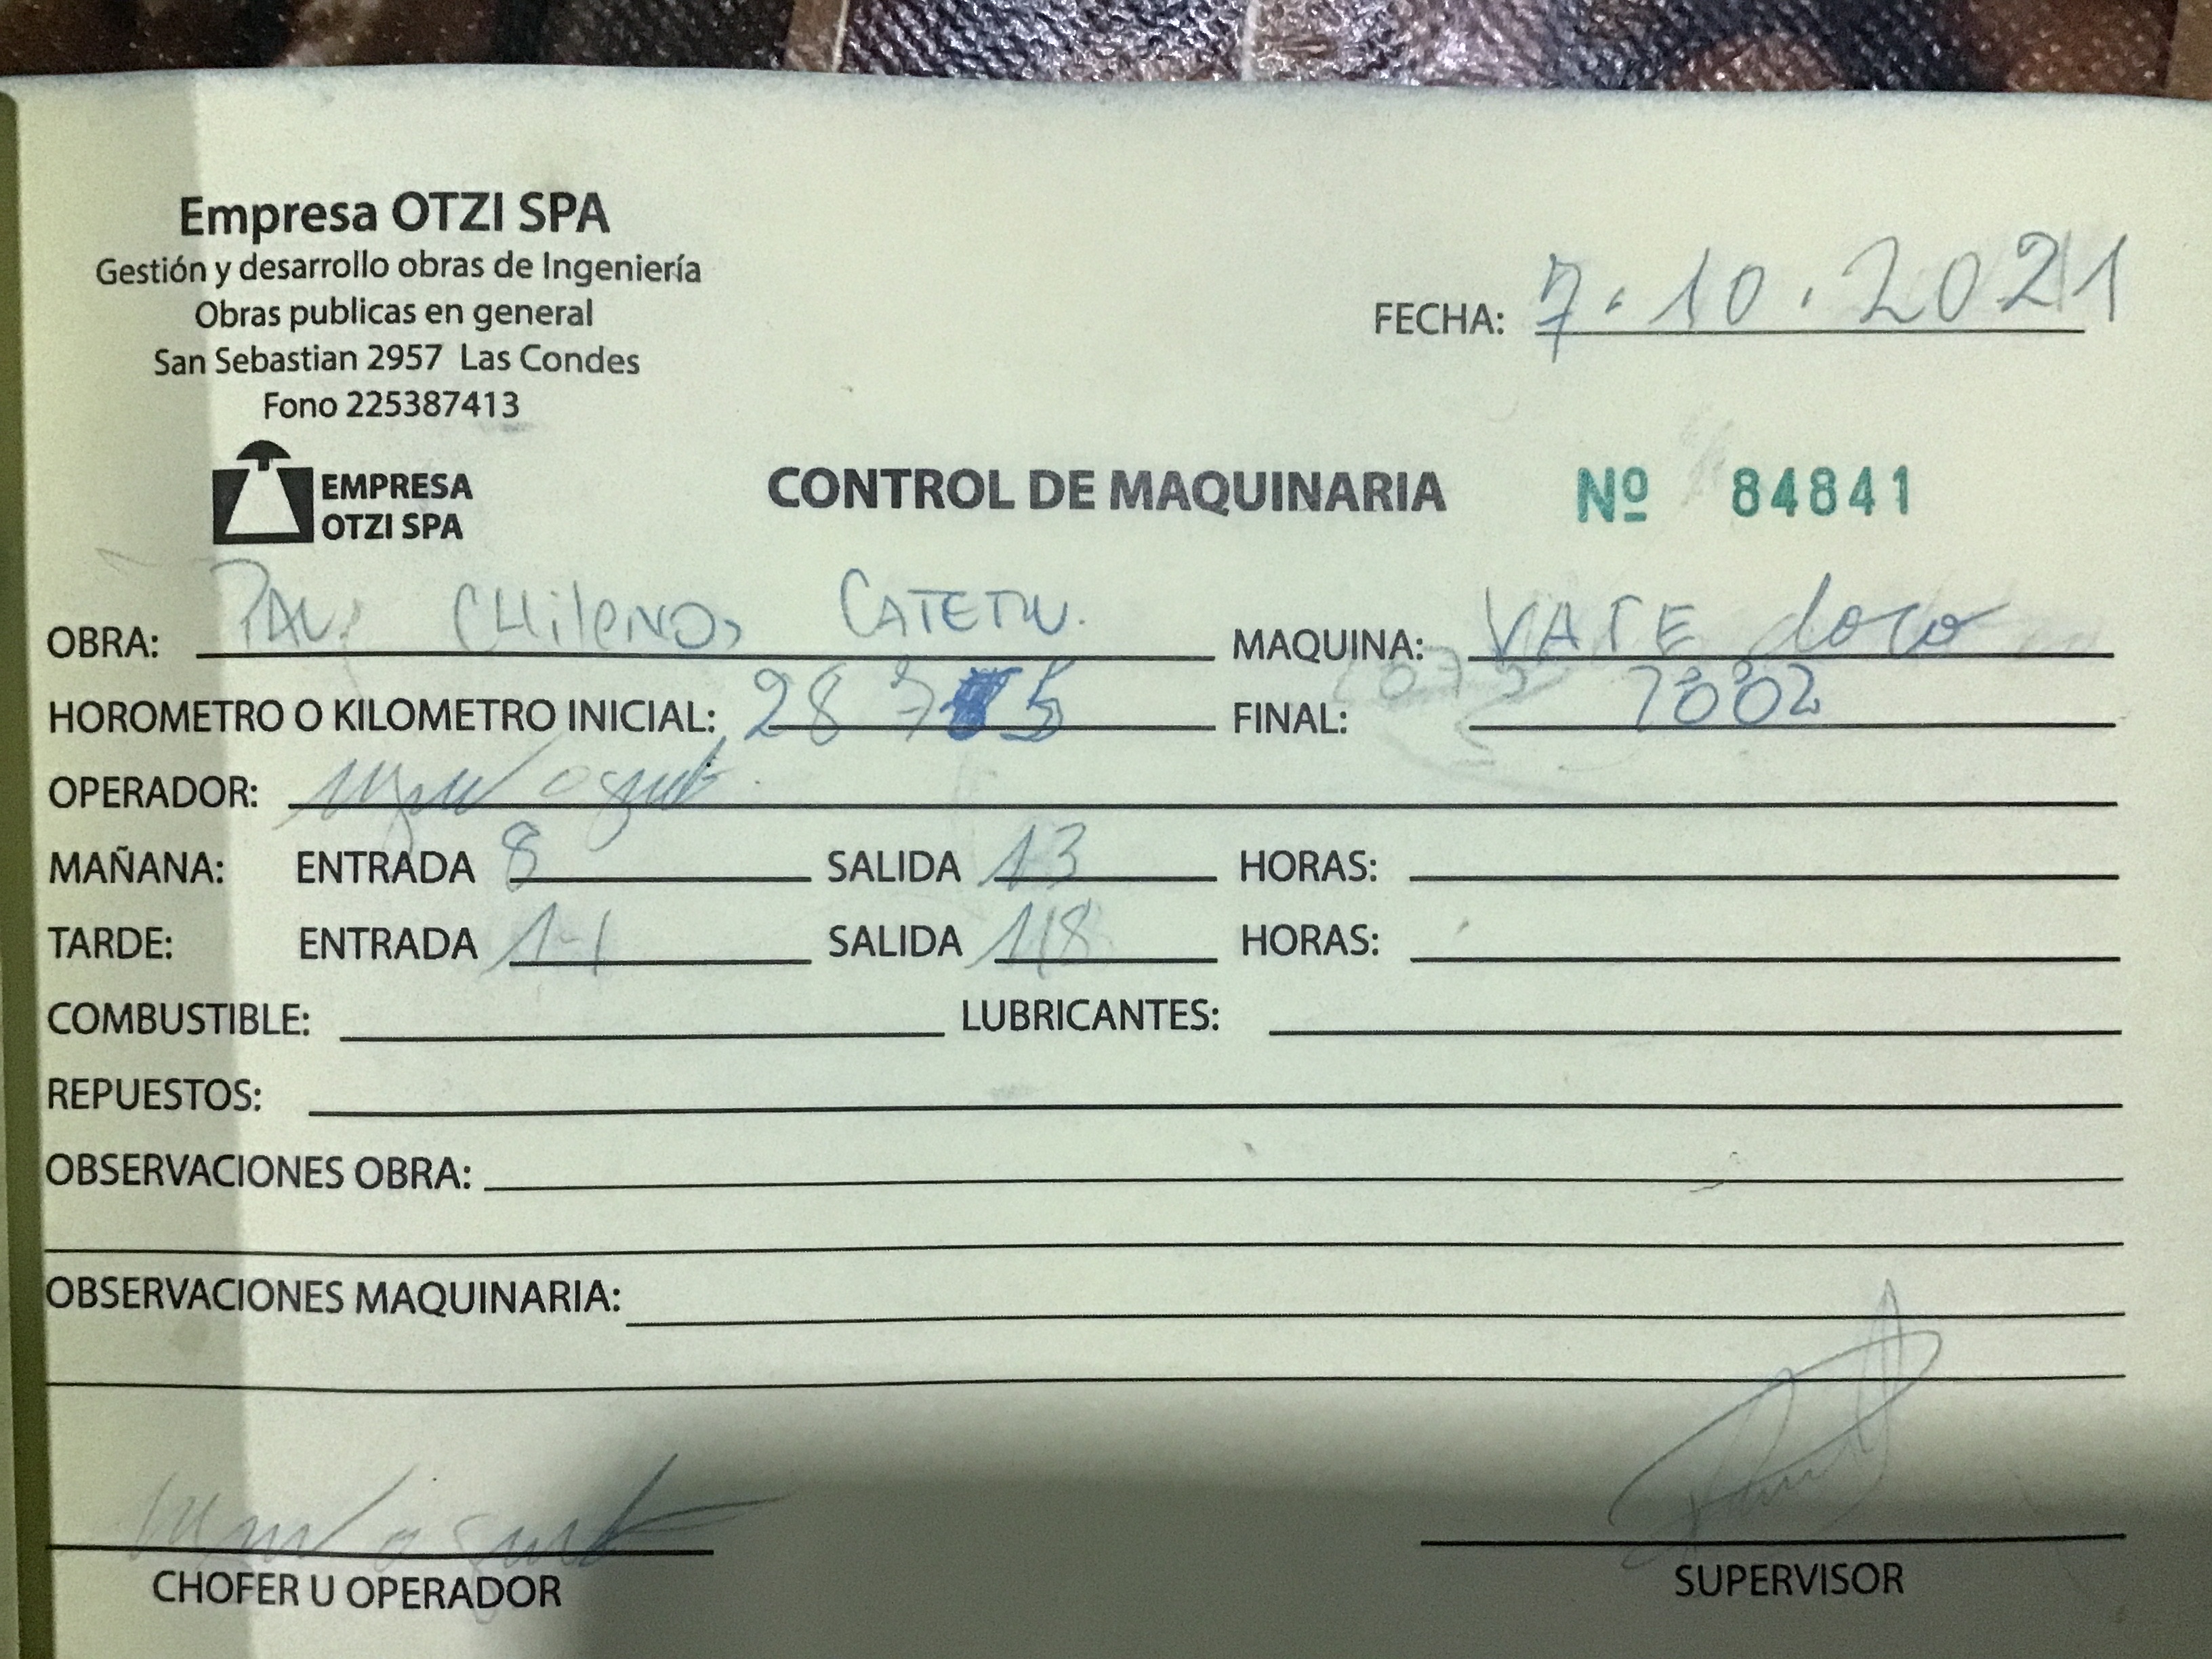 Empresa OTZI SPA
Gestión y desarrollo obras de Ingeniería
Obras publicas en general
San Sebastian 2957 Las Condes
Fono 225387413
FECHA: 7.10.2021
EMPRESA
OTZI SPA
CONTROL DE MAQUINARIA Nº 84841
OBRA: PAV. CHILENOS MAQUINA: VATE
HOROMETRO O KILOMETRO INICIAL: FINAL:
OPERADOR:
MAÑANA: ENTRADA 8 SALIDA 13 HORAS:
TARDE: ENTRADA SALIDA 18 HORAS:
COMBUSTIBLE: LUBRICANTES:
REPUESTOS:
OBSERVACIONES OBRA:
OBSERVACIONES MAQUINARIA:
CHOFER U OPERADOR
SUPERVISOR